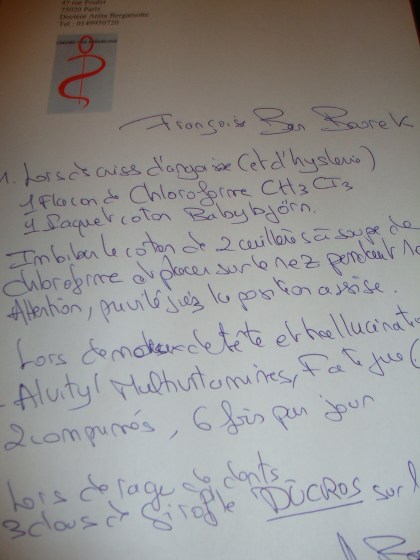 47 rue Pradet
75020 Paris
Docteur Anita Bergamotte
Tel : 01 49930720
Françoise Ben Barek
1. Lors de crises d'angoisse (et d'hysterie)
1 Flacon de Chloroforme CH3 Cl3
1 Paquet coton Babybjörn.
Imbiber le coton de 2 cuillères à soupe de
Chloroforme et placer sur le nez pendant
Attention, privilégiez la position assise.
Lors de maux de tête et hallucinati
- Alvityl Multivitamines, Fatigue (
2 comprimés, 6 fois par jour
Lors de rage de dents
3 clous de Girofle DUCROS sur l